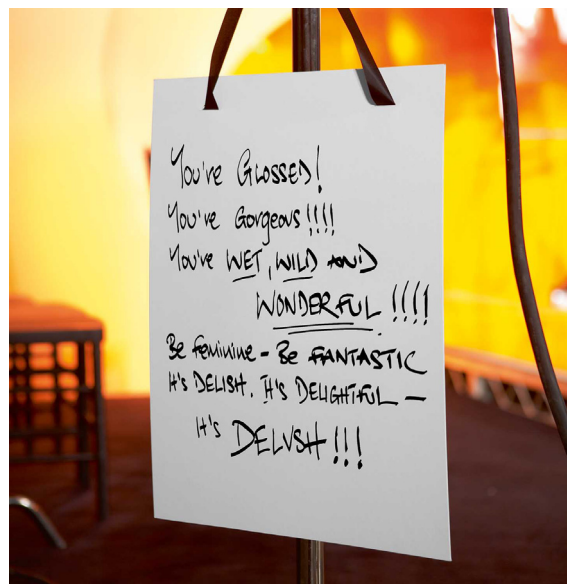 You're GLOSSED!
You're Gorgeous!!!!
You're WET, WILD AND
WONDERFUL!!!!
Be feminine - Be FANTASTIC
It's DELISH. It's DELIGHTFUL -
It's DELUSH!!!